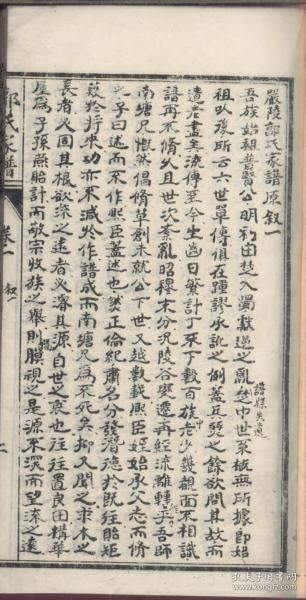 嚴陵鄒氏家譜原叙一
吾族始祖普賢公明利由楚入蜀獻逆之亂楚中世系概無所據即始
祖以後所云六世單傳俱在踵謬承訛之例蓋兵燹之餘欲問其故而
譜牒失遠
遺老盡矣流傳至今生齒日繁計丁不下數百族老少覿面不相識
中
譜再不脩久且世次紊亂昭穆未分況陵谷變遷再經流離轉乎吾師
南塘兄慨然倡脩草創未就公下世又越數載熙臣姪始承父志而脩
之子曰述而不作熙臣蓋述也然正倫紀肅名分發潛德於既往貽矩
於將來功亦不減於作譜成而南塘兄為不死矣抑又聞之求木之
長者必固其根欲流之遠者必濬其源自世之衰也往往置良田構華
屋為子孫燕貽計而敬宗收族之舉則膜視之是源不濬而望流之遠
鄒氏家譜
卷一
叙一
孔夫子旧书网